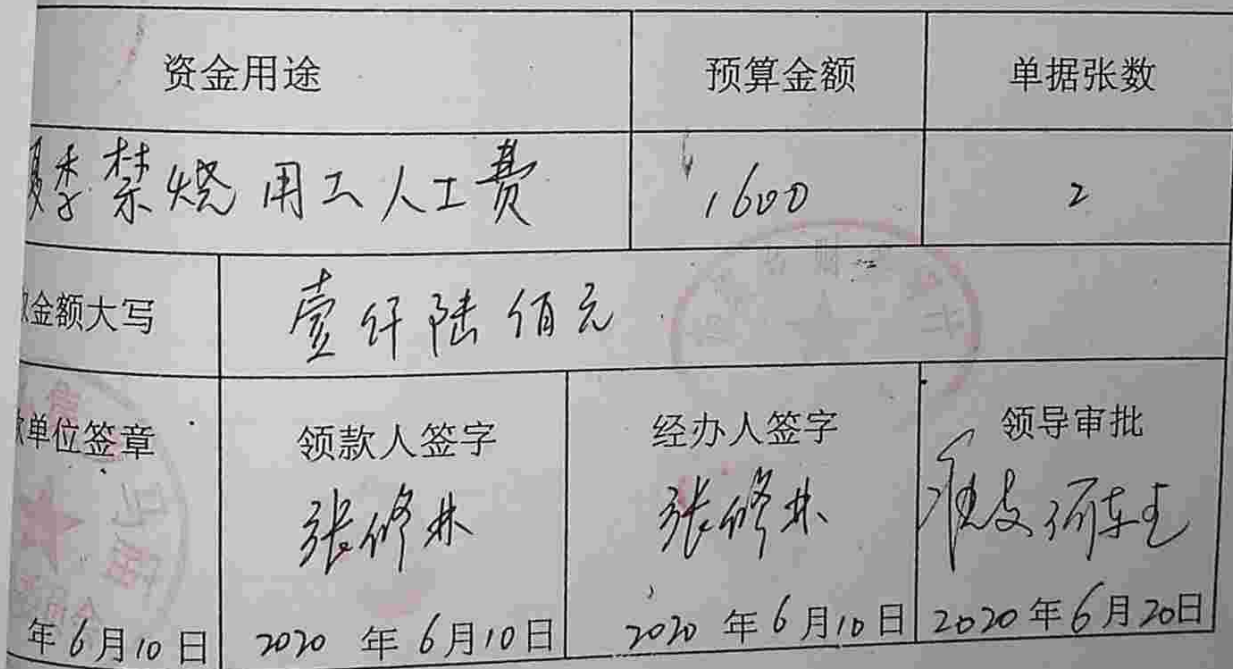 资金用途 预算金额 单据张数
夏季禁烧用工人工费 1600 2
金额大写 壹仟陆佰元
单位签章 领款人签字 经办人签字 领导审批
张修林 张修林
年6月10日 2020年6月10日 2020年6月10日 2020年6月20日